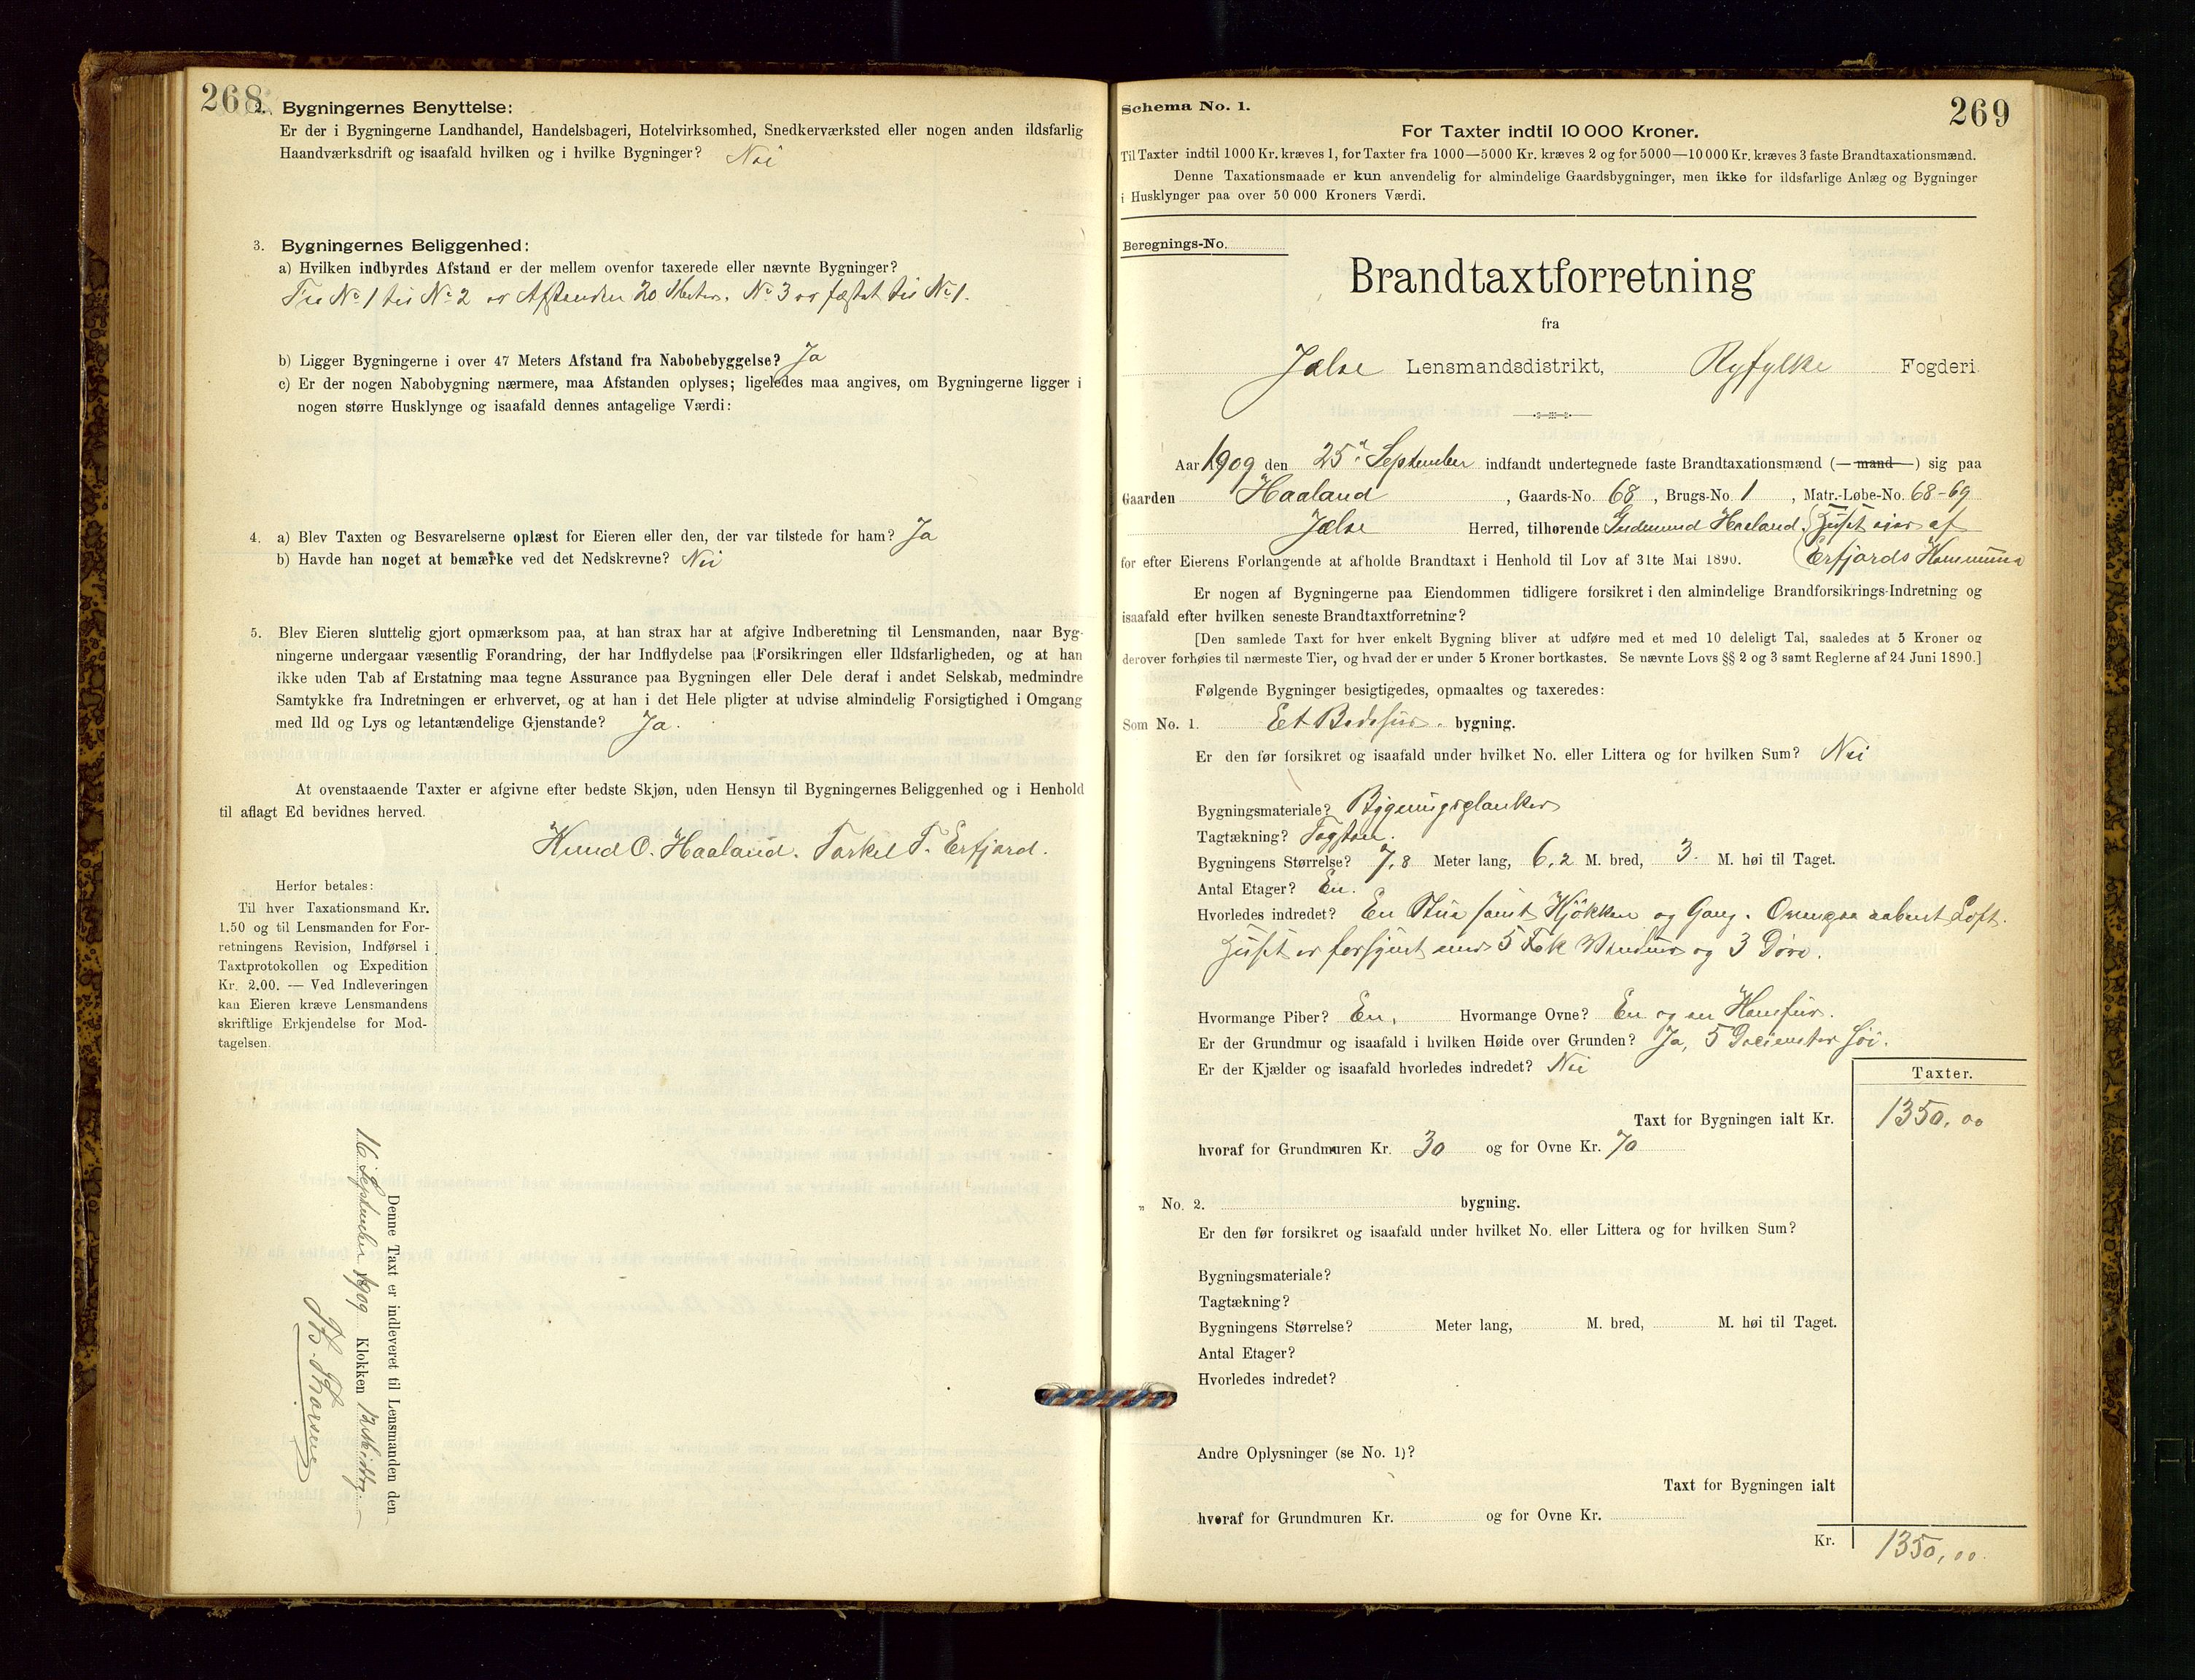 268
2. Bygningernes Benyttelse:
Er der i Bygningerne Landhandel, Handelsbageri, Hotelvirksomhed, Snedkerværksted eller nogen anden ildsfarlig
Haandværksdrift og isaafald hvilken og i hvilke Bygninger? Nei
3. Bygningernes Beliggenhed:
a) Hvilken indbyrdes Afstand er der mellem ovenfor taxerede eller nævnte Bygninger?
Fra No 1 til No 2 er Afstanden 20 Meter. No 3 er fæstet til No 1.
b) Ligger Bygningerne i over 47 Meters Afstand fra Nabobebyggelse? Ja
c) Er der nogen Nabobygning nærmere, maa Afstanden oplyses; ligeledes maa angives, om Bygningerne ligger i
nogen større Husklynge og isaafald dennes antagelige Værdi:
4. a) Blev Taxten og Besvarelserne oplæst for Eieren eller den, der var tilstede for ham? Ja
b) Havde han noget at bemærke ved det Nedskrevne? Nei
5. Blev Eieren sluttelig gjort opmærksom paa, at han strax har at afgive Indberetning til Lensmanden, naar Byg-
ningerne undergaar væsentlig Forandring, der har Indflydelse paa Forsikringen eller Ildsfarligheden, og at han
ikke uden Tab af Erstatning maa tegne Assurance paa Bygningen eller Dele deraf i andet Selskab, medmindre
Samtykke fra Indretningen er erhvervet, og at han i det Hele pligter at udvise almindelig Forsigtighed i Omgang
med Ild og Lys og letantændelige Gjenstande? Ja.
At ovenstaaende Taxter er afgivne efter bedste Skjøn, uden Hensyn til Bygningernes Beliggenhed og i Henhold
til aflagt Ed bevidnes herved.
Knud O. Haaland. Torkel T. Erfjord.
Herfor betales:
Til hver Taxationsmand Kr.
1.50 og til Lensmanden for For-
retningens Revision, Indførsel i
Taxtprotokollen og Expedition
Kr. 2.00. — Ved Indleveringen
kan Eieren kræve Lensmandens
skriftlige Erkjendelse for Mod-
tagelsen.
Denne Taxt er indleveret til Lensmanden den
16 September 1909 Klokken 12 Middag.
269
Schema No. 1.
For Taxter indtil 10 000 Kroner.
Til Taxter indtil 1000 Kr. kræves 1, for Taxter fra 1000—5000 Kr. kræves 2 og for 5000—10 000 Kr. kræves 3 faste Brandtaxationsmænd.
Denne Taxationsmaade er kun anvendelig for almindelige Gaardsbygninger, men ikke for ildsfarlige Anlæg og Bygninger
i Husklynger paa over 50 000 Kroners Værdi.
Beregnings-No.
Brandtaxtforretning
fra
Jelse Lensmandsdistrikt, Ryfylke Fogderi
Aar 1909 den 25d September indfandt undertegnede faste Brandtaxationsmænd (—mand—) sig paa
Gaarden Haaland, Gaards-No. 68, Brugs-No. 1, Matr.-Løbe-No. 68-69
Jelse Herred, tilhørende Gudmund Haaland. (Huset eies af
for efter Eierens Forlangende at afholde Brandtaxt i Henhold til Lov af 31te Mai 1890. Erfjords Kommune
Er nogen af Bygningerne paa Eiendommen tidligere forsikret i den almindelige Brandforsikrings-Indretning og
isaafald efter hvilken seneste Brandtaxtforretning?
[Den samlede Taxt for hver enkelt Bygning bliver at udføre med et med 10 deleligt Tal, saaledes at 5 Kroner og
derover forhøies til nærmeste Tier, og hvad der er under 5 Kroner bortkastes. Se nævnte Lovs §§ 2 og 3 samt Reglerne af 24 Juni 1890.]
Følgende Bygninger besigtigedes, opmaaltes og taxeredes:
Som No. 1. Et Bedehus. bygning.
Er den før forsikret og isaafald under hvilket No. eller Littera og for hvilken Sum? Nei
Bygningsmateriale? Bygningsplanker
Tagtækning? Tagsten.
Bygningens Størrelse? 7,8 Meter lang, 6,2 M. bred, 3. M. høi til Taget.
Antal Etager? En.
Hvorledes indredet? En Stue samt Kjøkken og Gang. Ovenpaa aabent Loft.
Huset er forsynet med 5 Fak Vinduer og 3 Døre.
Hvormange Piber? En, Hvormange Ovne? En og en Komfur.
Er der Grundmur og isaafald i hvilken Høide over Grunden? Ja, 5 Decimeter høi.
Er der Kjælder og isaafald hvorledes indredet? Nei
Taxter.
Taxt for Bygningen ialt Kr. 1350,00
hvoraf for Grundmuren Kr. 30 og for Ovne Kr. 70
„ No. 2. bygning.
Er den før forsikret og isaafald under hvilket No. eller Littera og for hvilken Sum?
Bygningsmateriale?
Tagtækning?
Bygningens Størrelse? Meter lang, M. bred, M. høi til Taget.
Antal Etager?
Hvorledes indredet?
Andre Oplysninger (se No. 1)?
Taxt for Bygningen ialt
hvoraf for Grundmuren Kr. og for Ovne Kr.
Kr. 1350,00.